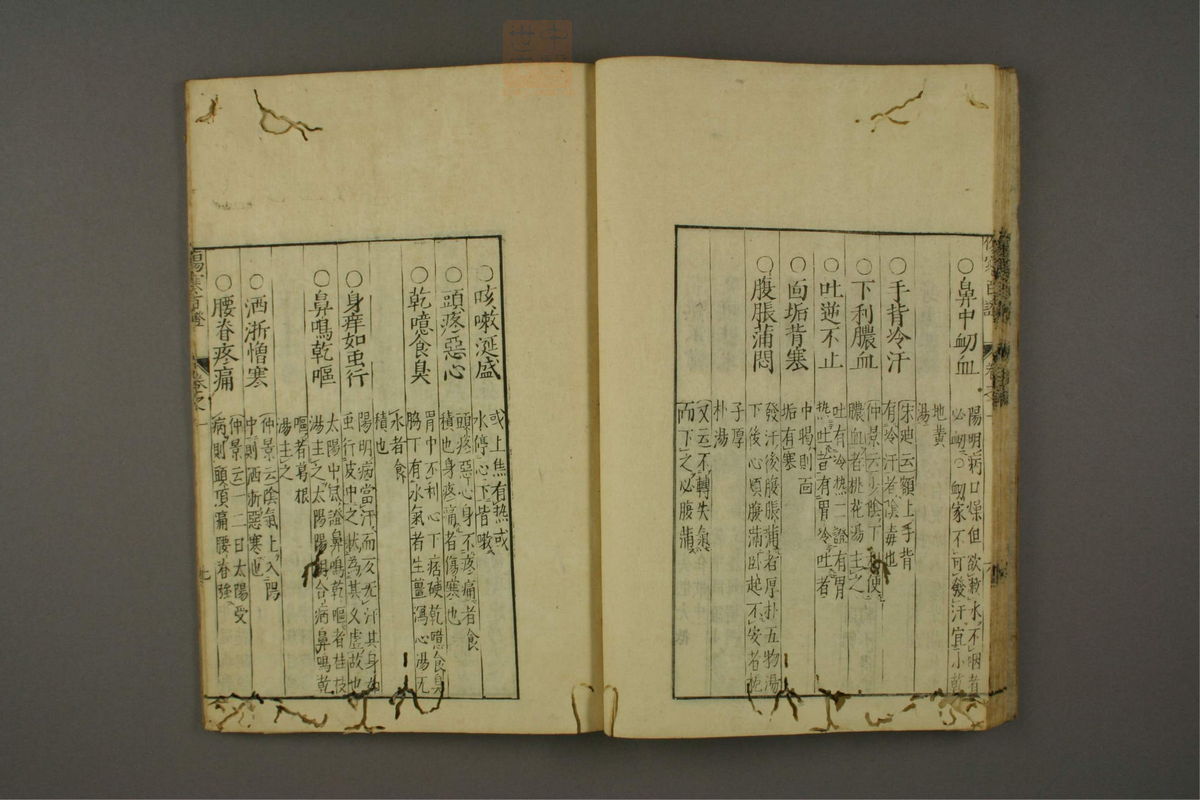 ○鼻中衂血
陽明病口燥但欲漱水不咽者
必衂○衂家不可發汗宜小乾
地黄
湯
○手背冷汗
宋廸云額上手背
有冷汗者陰毒也
○下利膿血
仲景云少陰下利便
膿血者桃花湯主之
○吐逆不止
吐有冷热二證有胃
热吐者有胃冷吐者
○面垢背塞
中暍則面
垢有塞
○腹脹蒲悶
發汗後腹脹蒲者厚朴五物湯
下後心煩腹滿卧起不安者梔
子厚
朴湯
又云不轉失氣
而下之必腹蒲
○咳嗽涎盛
或上焦有热或
水停心下皆嗽
○頭疼惡心
頭疼惡心身不疼痛者食
積也身疼痛者傷寒也
○乾噫食臭
胃中不利心下痞硬乾噫食臭
脇下有水氣者生薑瀉心湯无
水者食
積也
○身痒如虫行
陽明病當汗而反无汗其身如
虫行皮中之狀為其久虚故也
○鼻鳴乾嘔
太陽中風證鼻鳴乾嘔者桂枝
湯主之太陽陽明合病鼻鳴乾
嘔者葛根
湯主之
○洒浙憎寒
仲景云陰氣上入陽
中則洒浙惡寒也
○腰脊疼痛
仲景云一二日太陽受
病則頭項痛腰脊強
傷寒百證